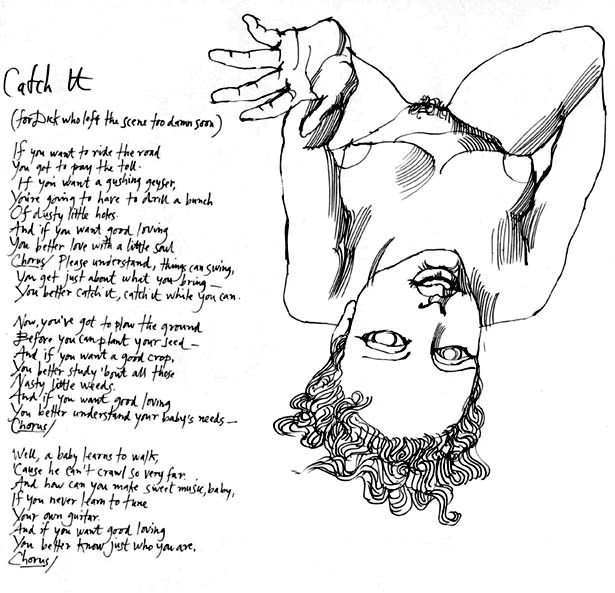 Catch It
(for Dick who left the scene too damn soon)
If you want to ride the road
You got to pay the toll.
If you want a gushing geyser,
You're going to have to drill a bunch
Of dusty little holes.
And if you want good loving
You better love with a little soul
Chorus/ Please understand, things can swing,
You get just about what you bring —
You better catch it, catch it while you can.
Now, you've got to plow the ground
Before you can plant your seed —
And if you want a good crop,
You better study 'bout all those
Nasty little weeds.
And if you want good loving
You better understand your baby's needs —
Chorus/
Well, a baby learns to walk,
'Cause he can't crawl so very far.
And how can you make sweet music, baby,
If you never learn to tune
Your own guitar.
And if you want good loving
You better know just who you are,
Chorus/